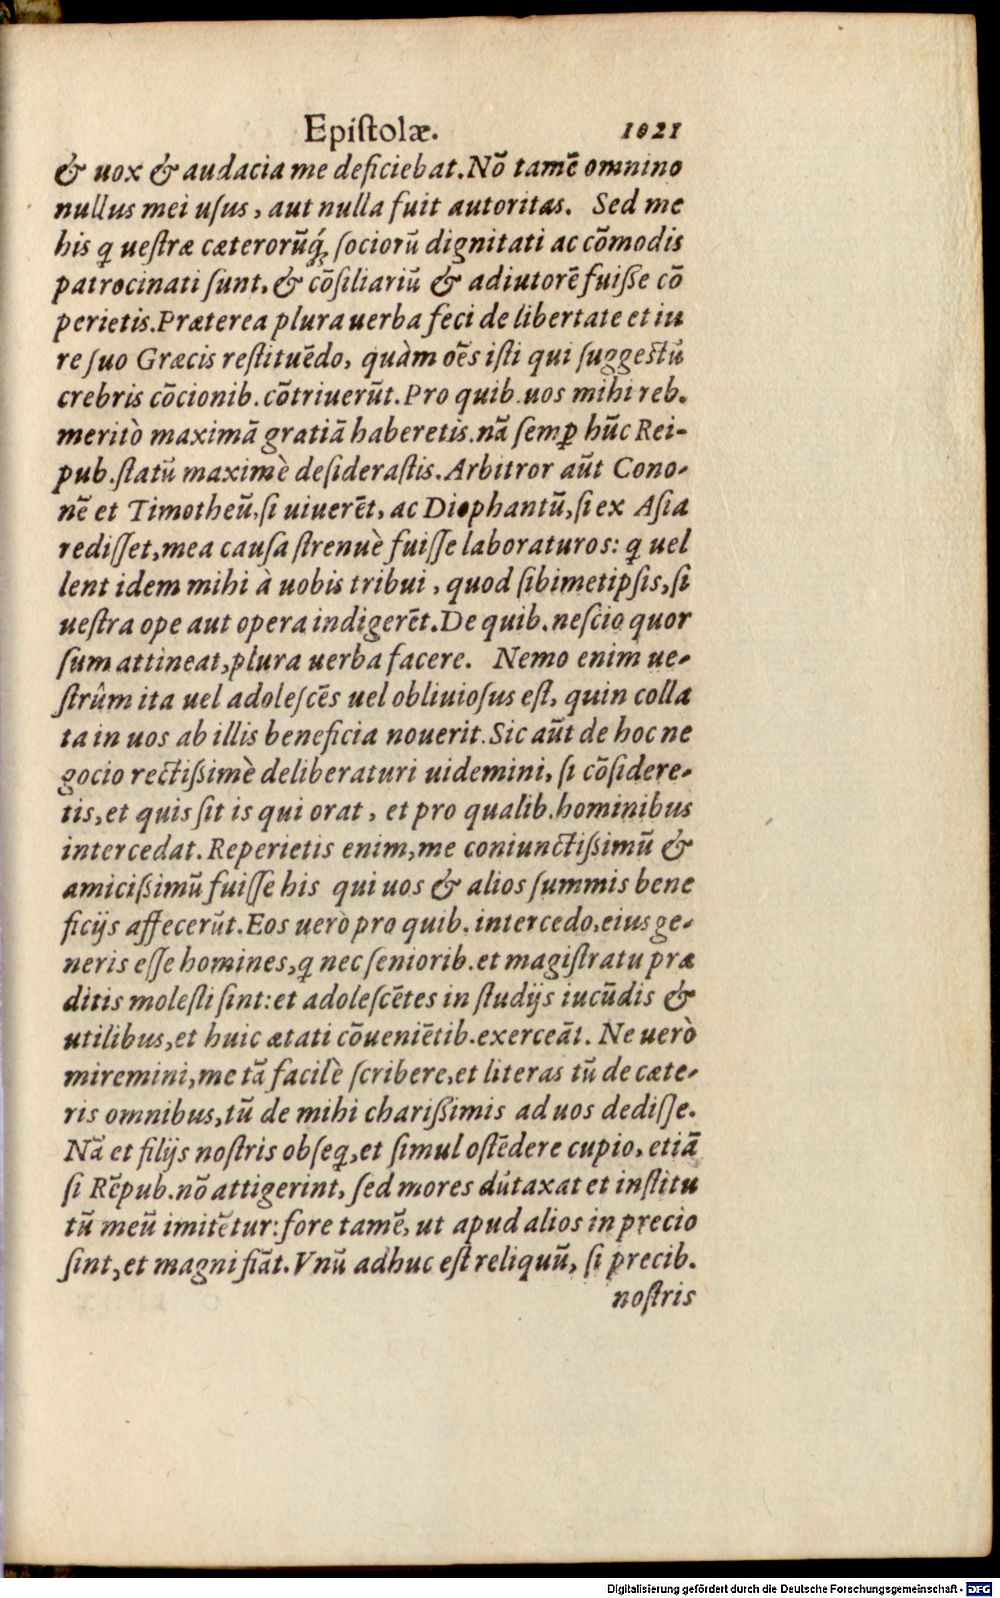 Epiſtolæ. 1021
& uox & audacia me deficiebat. Nō tamē omnino
nullus mei uſus, aut nulla fuit autoritas. Sed me
his q̃ ueſtræ cæterorūq́; ſociorū dignitati ac cōmodis
patrocinati ſunt, & cōſiliariū & adiutorē fuiſſe cō
perietis. Præterea plura uerba feci de libertate et iu
re ſuo Græcis reſtituēdo, quàm oēs iſti qui ſuggeſtū
crebris cōcionib. cōtriuerūt. Pro quib. uos mihi reb.
meritò maximā gratiā haberetis. nā ſemꝑ hūc Rei-
pub. ſtatū maximè deſideraſtis. Arbitror aūt Cono-
nē et Timotheū, ſi uiuerēt, ac Diophantū, ſi ex Aſia
rediſſet, mea cauſa ſtrenuè fuiſſe laboraturos: q̃ uel
lent idem mihi à uobis tribui, quod ſibimetipſis, ſi
ueſtra ope aut opera indigerēt. De quib. neſcio quor
ſum attineat, plura uerba facere. Nemo enim ue-
ſtrûm ita uel adoleſcēs uel obliuioſus eſt, quin colla
ta in uos ab illis beneficia nouerit. Sic aūt de hoc ne
gocio rectiſſimè deliberaturi uidemini, ſi cōſidere-
tis, et quis ſit is qui orat, et pro qualib. hominibus
intercedat. Reperietis enim, me coniunctiſſimū &
amiciſſimū fuiſſe his qui uos & alios ſummis bene
ficijs affecerūt. Eos uerò pro quib. intercedo, eius ge-
neris eſſe homines, q̃ nec ſeniorib. et magiſtratu præ
ditis moleſti ſint: et adoleſcētes in ſtudijs iucūdis &
utilibus, et huic ætati cōueniētib. exerceāt. Ne uerò
miremini, me tā facilè ſcribere, et literas tū de cæte-
ris omnibus, tū de mihi chariſſimis ad uos dediſſe.
Nā et filijs noſtris obſeq̃, et ſimul oſtēdere cupio, etiā
ſi Rēpub. nō attigerint, ſed mores dūtaxat et inſtitu
tū meū imitētur: fore tamē, ut apud alios in precio
ſint, et magni fiāt. Vnū adhuc eſt reliquū, ſi precib.
noſtris
Digitalisierung gefördert durch die Deutsche Forschungsgemeinschaft - DFG